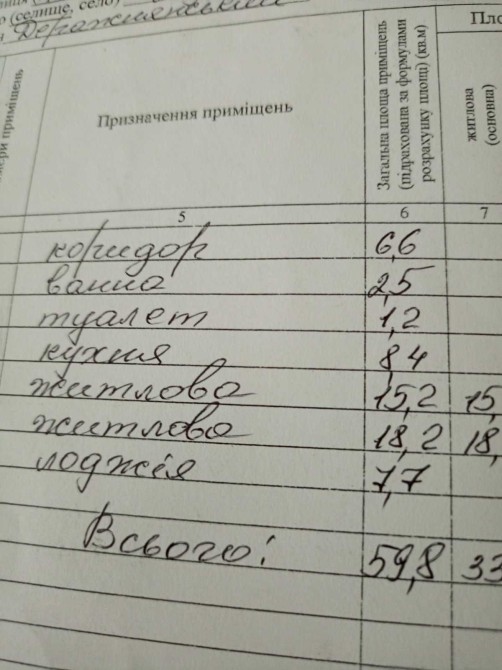 (селище, село)
Деражнянський
Пло
приміщень
Призначення приміщень
Загальна площа приміщень
(підрахована за формулами
розрахунку площі) (кв.м)
житлова
(основна)
5 6 7
коридор 6,6
ванна 2,5
туалет 1,2
кухня 8,4
житлова 15,2 15,
житлова 18,2 18,
лоджія 7,7
Всього: 59,8 33